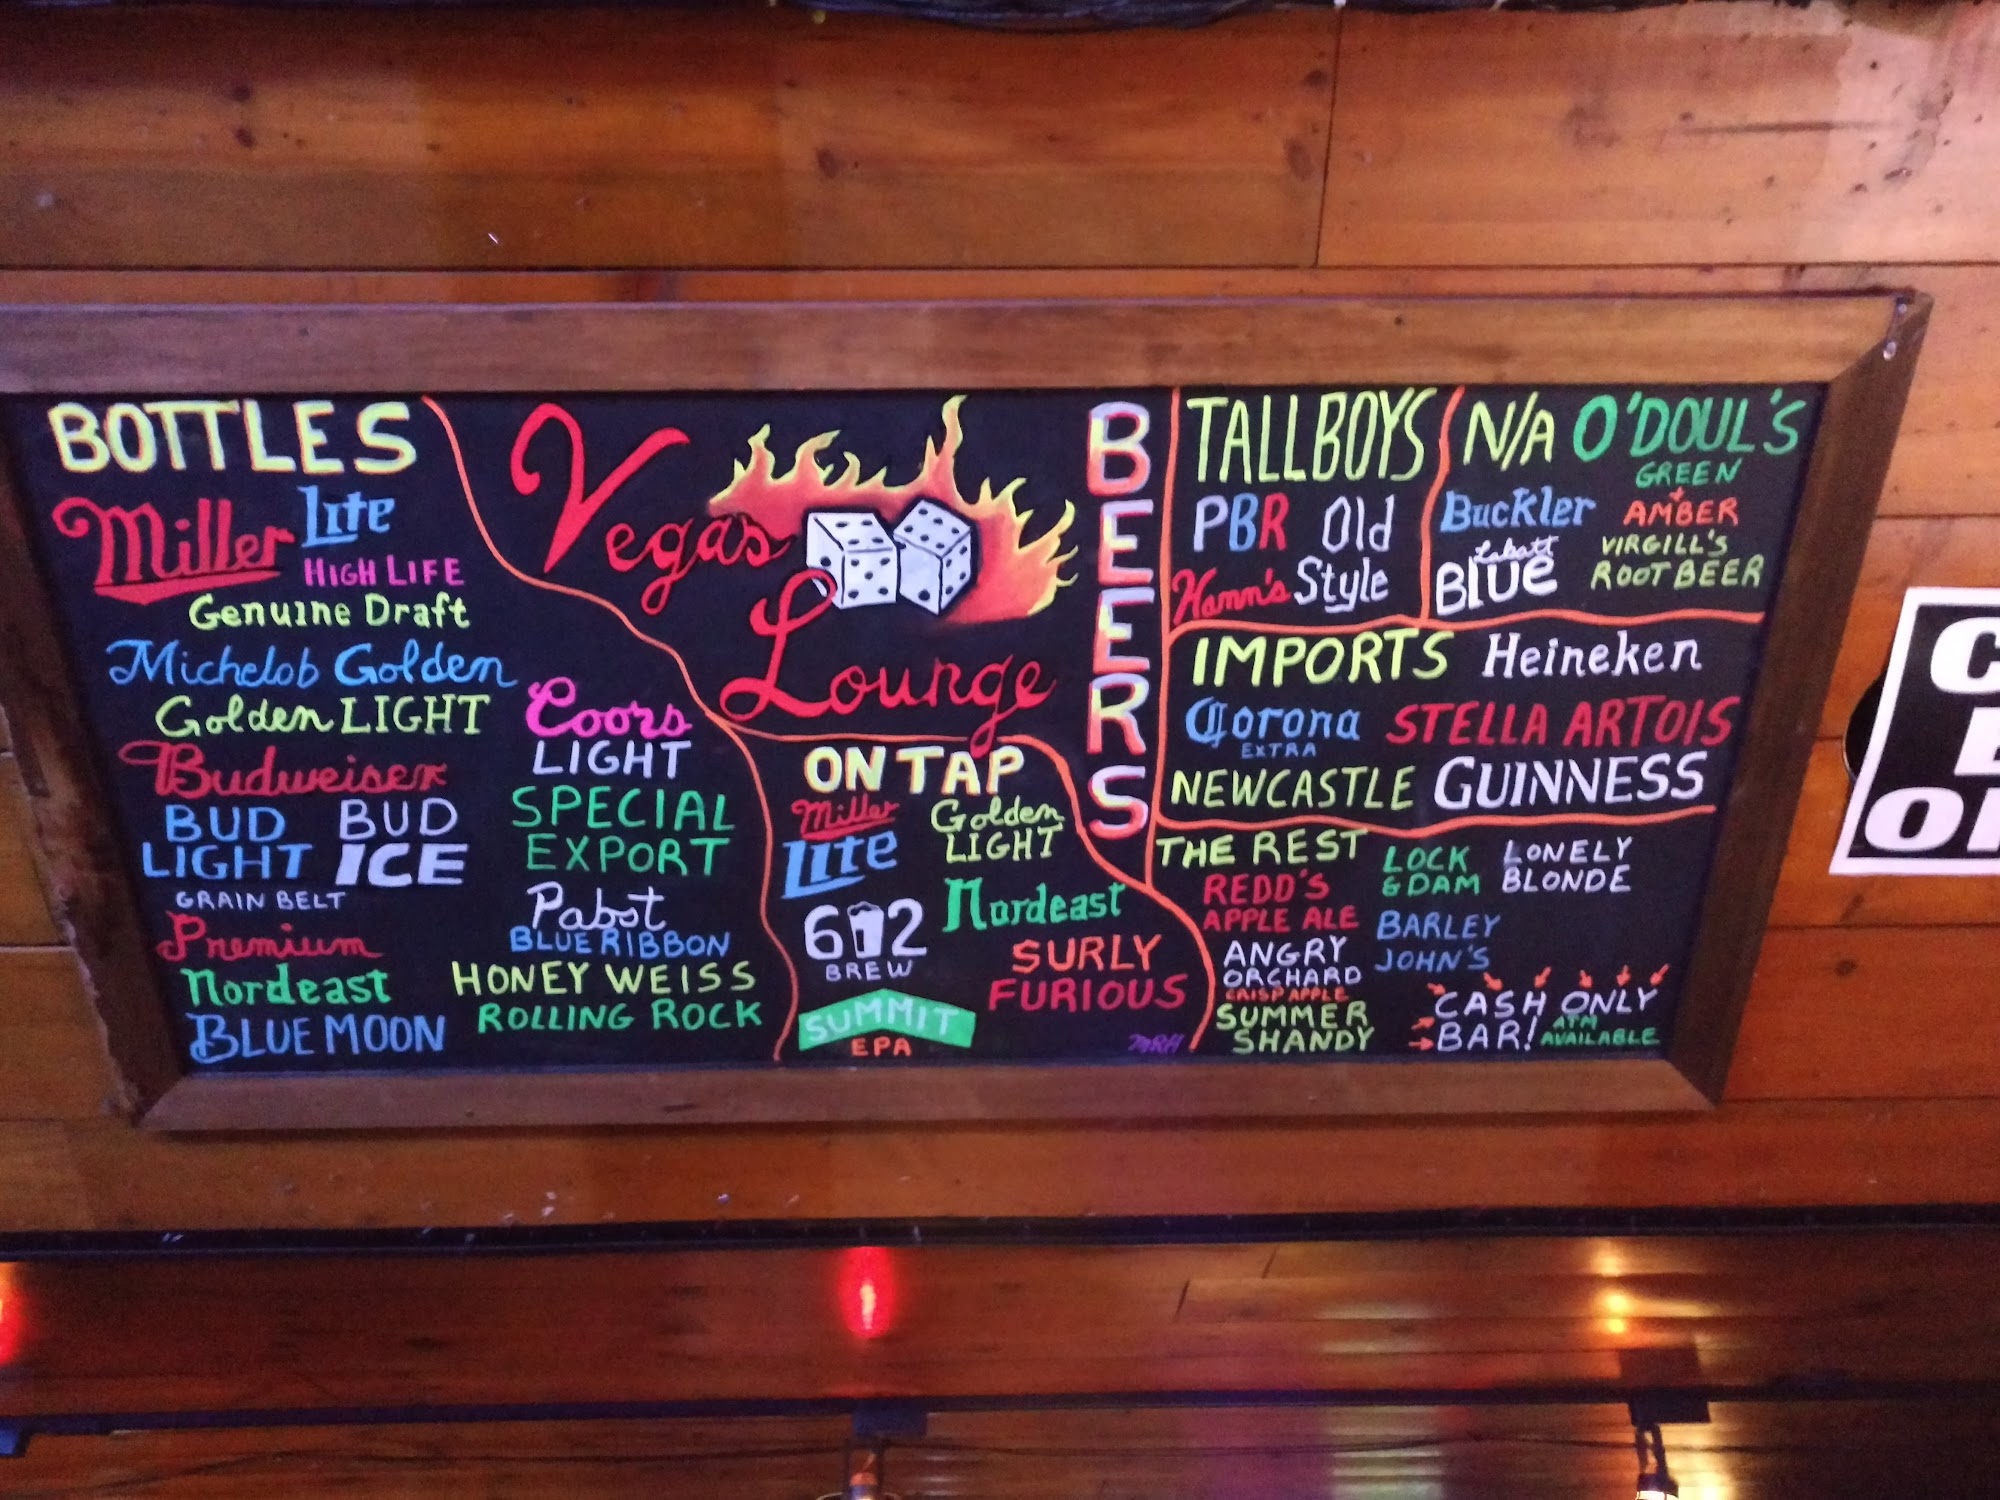 BOTTLES
Miller Lite
HIGH LIFE
Genuine Draft
Michelob Golden
Golden LIGHT
Budweiser
BUD LIGHT
BUD ICE
GRAIN BELT
Premium
Nordeast
BLUE MOON
Coors
LIGHT
SPECIAL
EXPORT
Pabst
BLUE RIBBON
HONEY WEISS
ROLLING ROCK
Vegas
Lounge
BEERS
ON TAP
Miller
Lite
Golden
LIGHT
612
BREW
Nordeast
SURLY
FURIOUS
SUMMIT
EPA
MRH
TALLBOYS
PBR
Old
Style
Hamm's
N/A O'DOUL'S
GREEN
+
AMBER
Buckler
Labatt
BLUE
VIRGILL'S
ROOT BEER
IMPORTS Heineken
Corona
EXTRA
STELLA ARTOIS
NEWCASTLE GUINNESS
THE REST
REDD'S
APPLE ALE
ANGRY
ORCHARD
CRISP APPLE
SUMMER
SHANDY
LOCK
& DAM
LONELY
BLONDE
BARLEY
JOHN'S
CASH ONLY
BAR! ATM
AVAILABLE